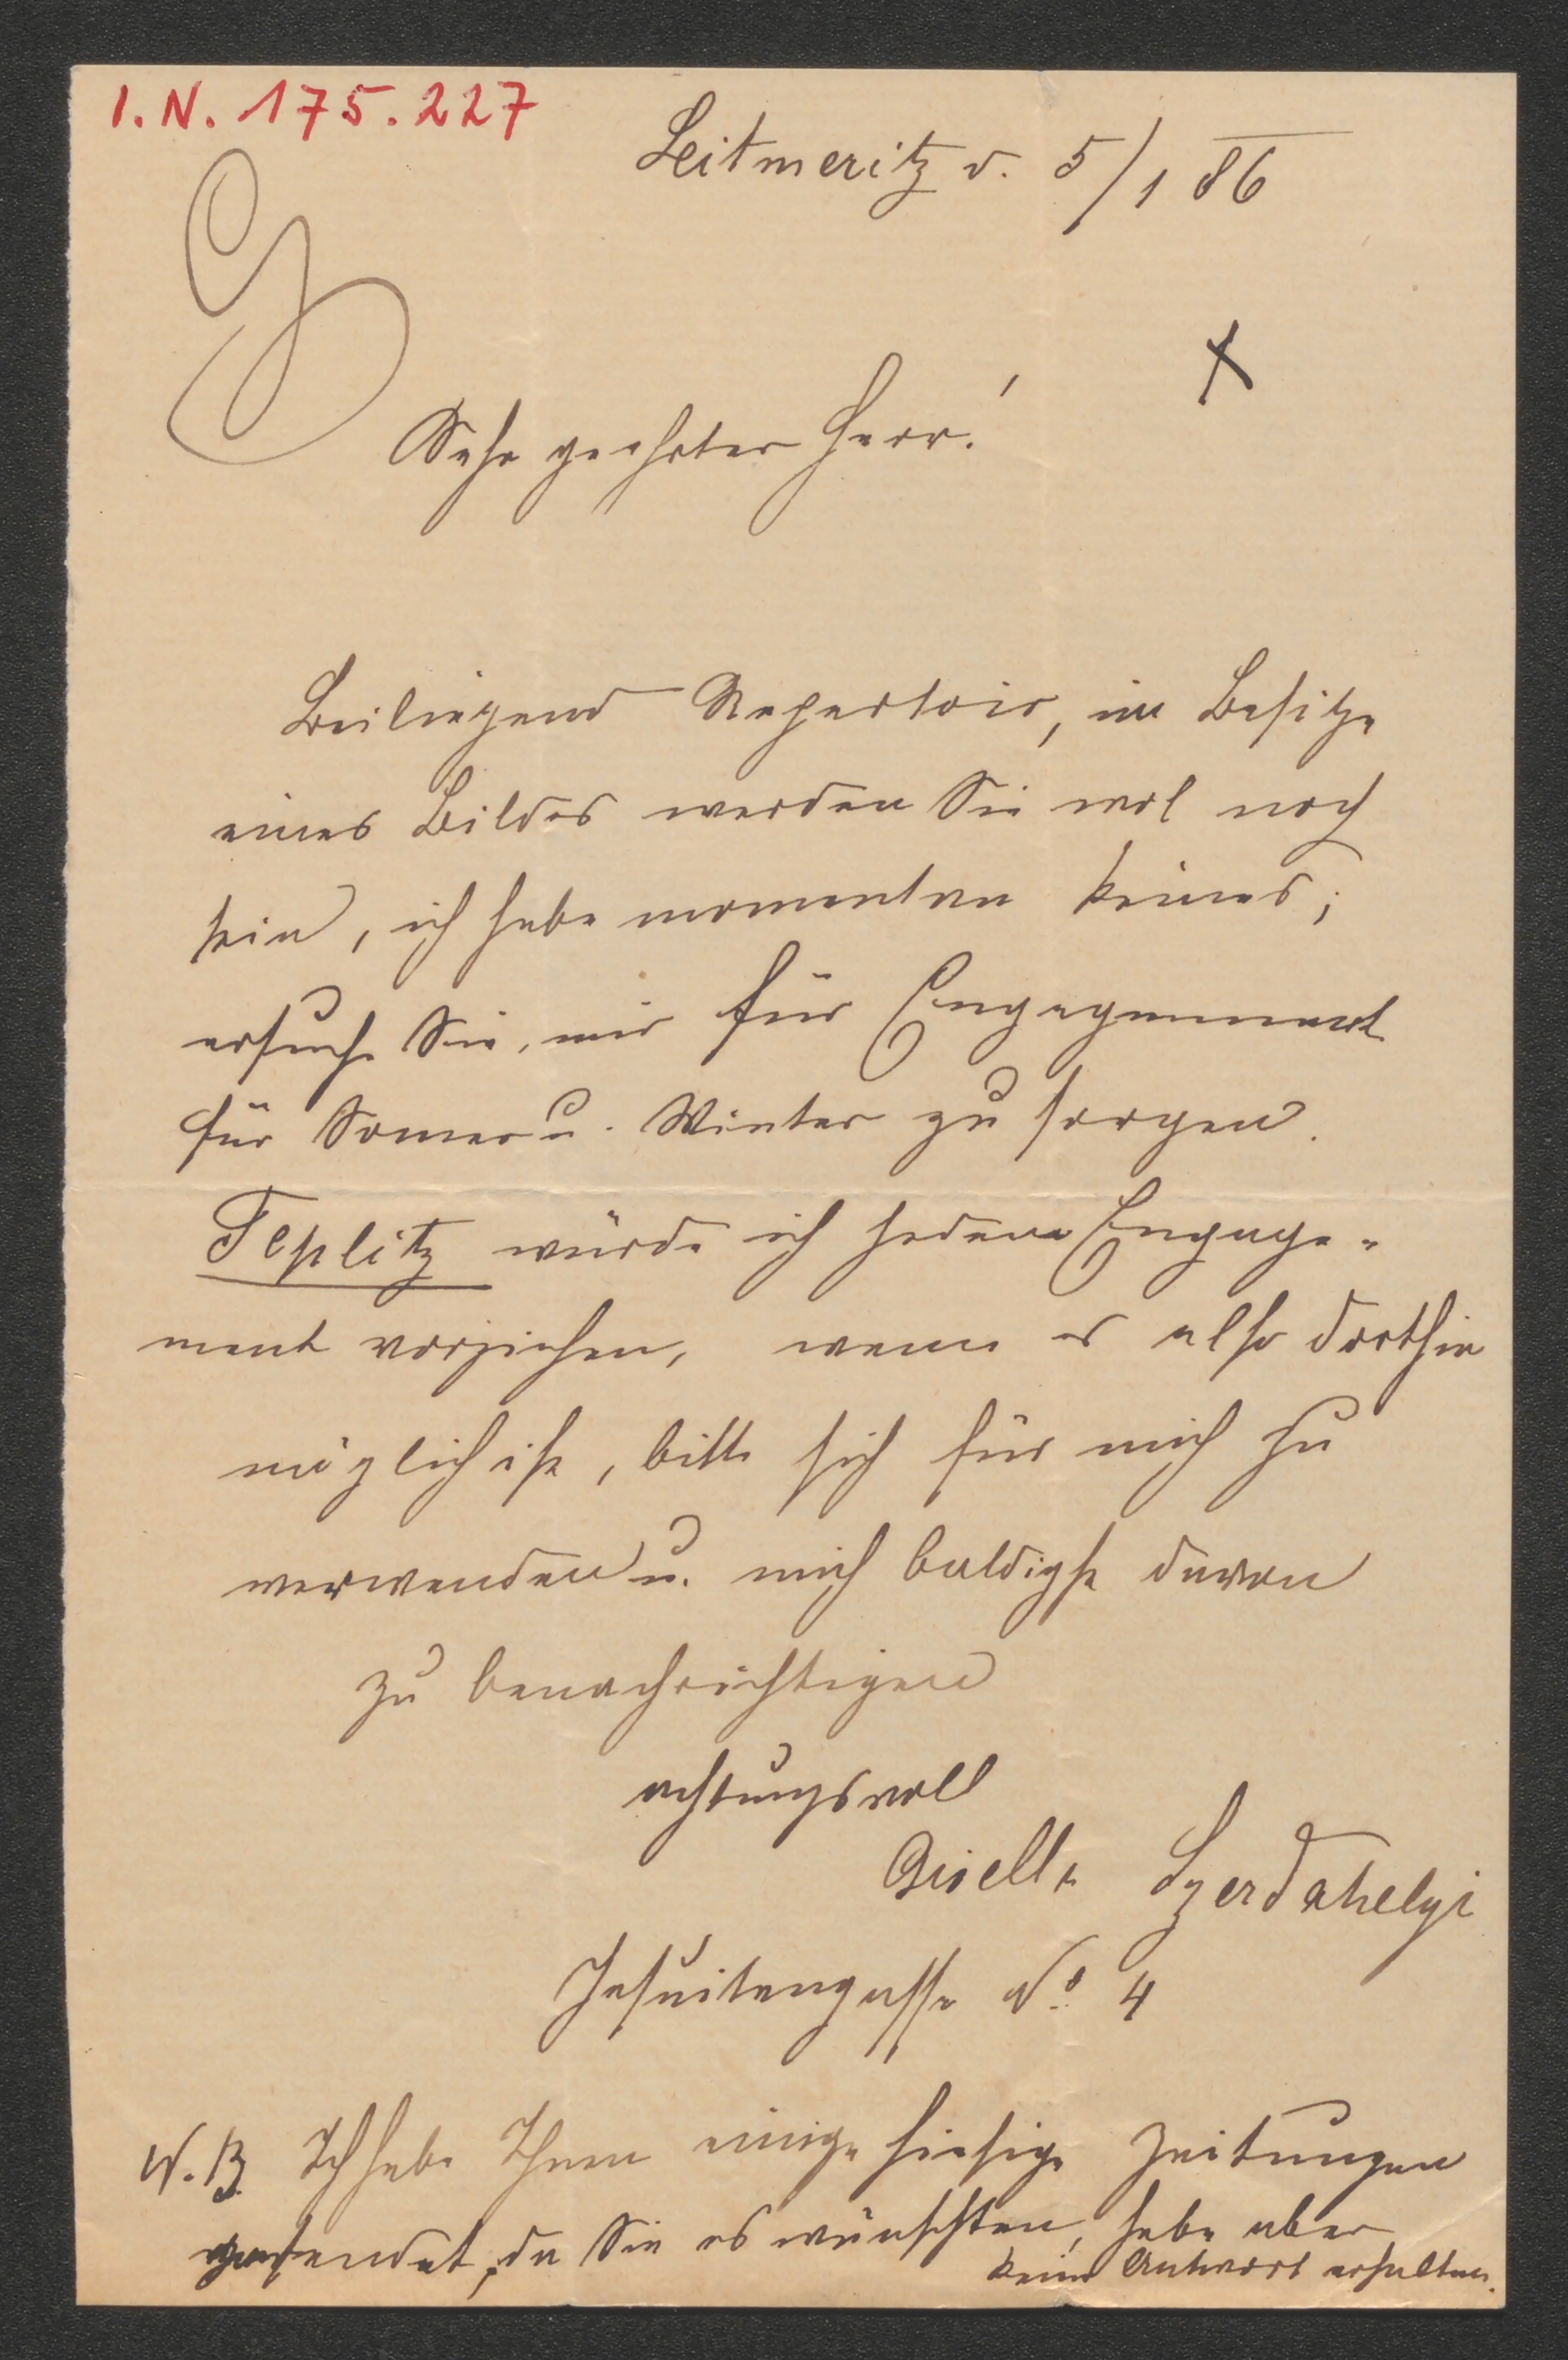 I.N. 175.227
Leitmeritz d. 5/1 86
Sehr geehrter Herr!
Beiliegend Repertoir, im Besitze
eines Bildes werden Sie wol noch
sein, ich habe momentan keines;
ersuche Sie, mir für Engagemment
für Somer u. Winter zu sorgen.
Teplitz würde ich jedem Engage-
ment vorziehen, wenn es also dorthin
möglich ist, bitte sich für mich zu
verwenden u. mich baldigst davon
zu benachrichtigen
achtungsvoll
Gisella Szerdahelyi
Jesuitengasse No 4
N.B. Ich habe Ihnen einige hiesige Zeitungen
gesendet, da Sie es wünschten, habe aber
keine Antwort erhalten.